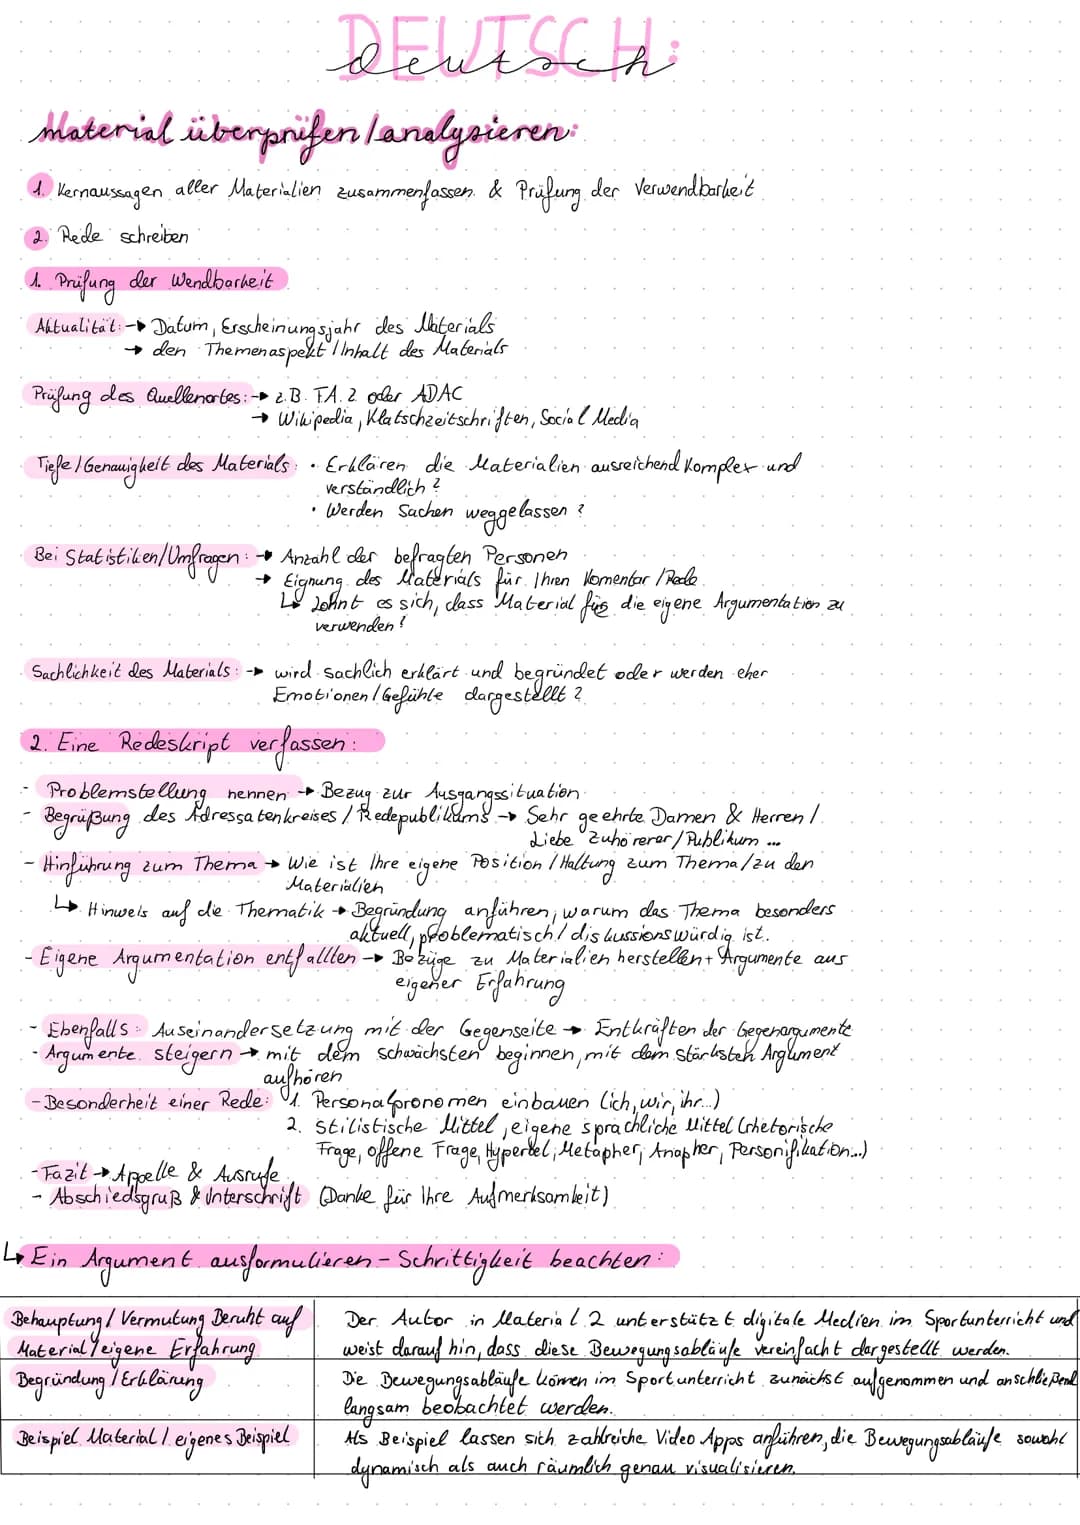 DEUTSCH:
deutsch
Material überprüfen/analysieren:
1. Kernaussagen aller Materialien zusammenfassen & Prüfung der Verwendbarkeit
2. Rede schreiben
1. Prüfung der Wendbarkeit
Aktualität: → Datum, Erscheinungsjahr des Materials
→ den Themenaspekt/Inhalt des Materials
Prüfung des Quellenortes: → z.B. FA.2 oder ADAC
→ Wikipedia, Klatschzeitschriften, Social Media
Tiefe/Genauigkeit des Materials: • Erklären die Materialien ausreichend komplex und
verständlich?
• Werden Sachen weggelassen?
Bei Statistiken/Umfragen: → Anzahl der befragten Personen
→ Eignung des Materials für Ihren Komentar/Rede
↳ Lohnt es sich, dass Material für die eigene Argumentation zu
verwenden?
Sachlichkeit des Materials: → wird sachlich erklärt und begründet oder werden eher
Emotionen/Gefühle dargestellt?
2. Eine Redeskript verfassen:
- Problemstellung nennen → Bezug zur Ausgangssituation
- Begrüßung des Adressatenkreises/Redepublikums → Sehr geehrte Damen & Herren/
Liebe Zuhörerer/Publikum ...
- Hinführung zum Thema → Wie ist Ihre eigene Position/Haltung zum Thema/zu den
Materialien
↳ Hinweis auf die Thematik → Begründung anführen, warum das Thema besonders
aktuell, problematisch/diskussionswürdig ist.
- Eigene Argumentation entfallten → Bezüge zu Materialien herstellen + Argumente aus
eigener Erfahrung
- Ebenfalls: Auseinandersetzung mit der Gegenseite → Entkräften der Gegenargumente
- Argumente steigern → mit dem schwächsten beginnen, mit dem stärksten Argument
aufhören
- Besonderheit einer Rede: 1. Personalpronomen einbauen (ich, wir, ihr...)
2. Stilistische Mittel, eigene sprachliche Mittel (rhetorische
Frage, offene Frage, Hyperbel, Metapher, Anapher, Personifikation...)
- Fazit → Appelle & Ausrufe
- Abschiedsgruß & Unterschrift (Danke für Ihre Aufmerksamkeit)
↳ Ein Argument ausformulieren - Schrittigkeit beachten:
Behauptung/Vermutung Beruht auf
Material/eigene Erfahrung
Der Autor in Material 2 unterstützt digitale Medien im Sportunterricht und
weist darauf hin, dass diese Bewegungsabläufe vereinfacht dargestellt werden.
Begründung/Erklärung
Die Bewegungsabläufe können im Sportunterricht zunächst aufgenommen und anschließend
langsam beobachtet werden.
Beispiel Material/eigenes Beispiel
Als Beispiel lassen sich zahlreiche Video Apps anführen, die Bewegungsabläufe sowohl
dynamisch als auch räumlich genau visualisieren.